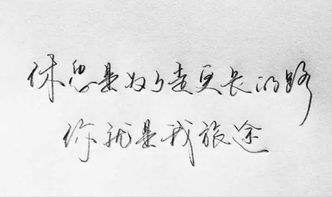 休息是为了走更长的路
你就是我旅途